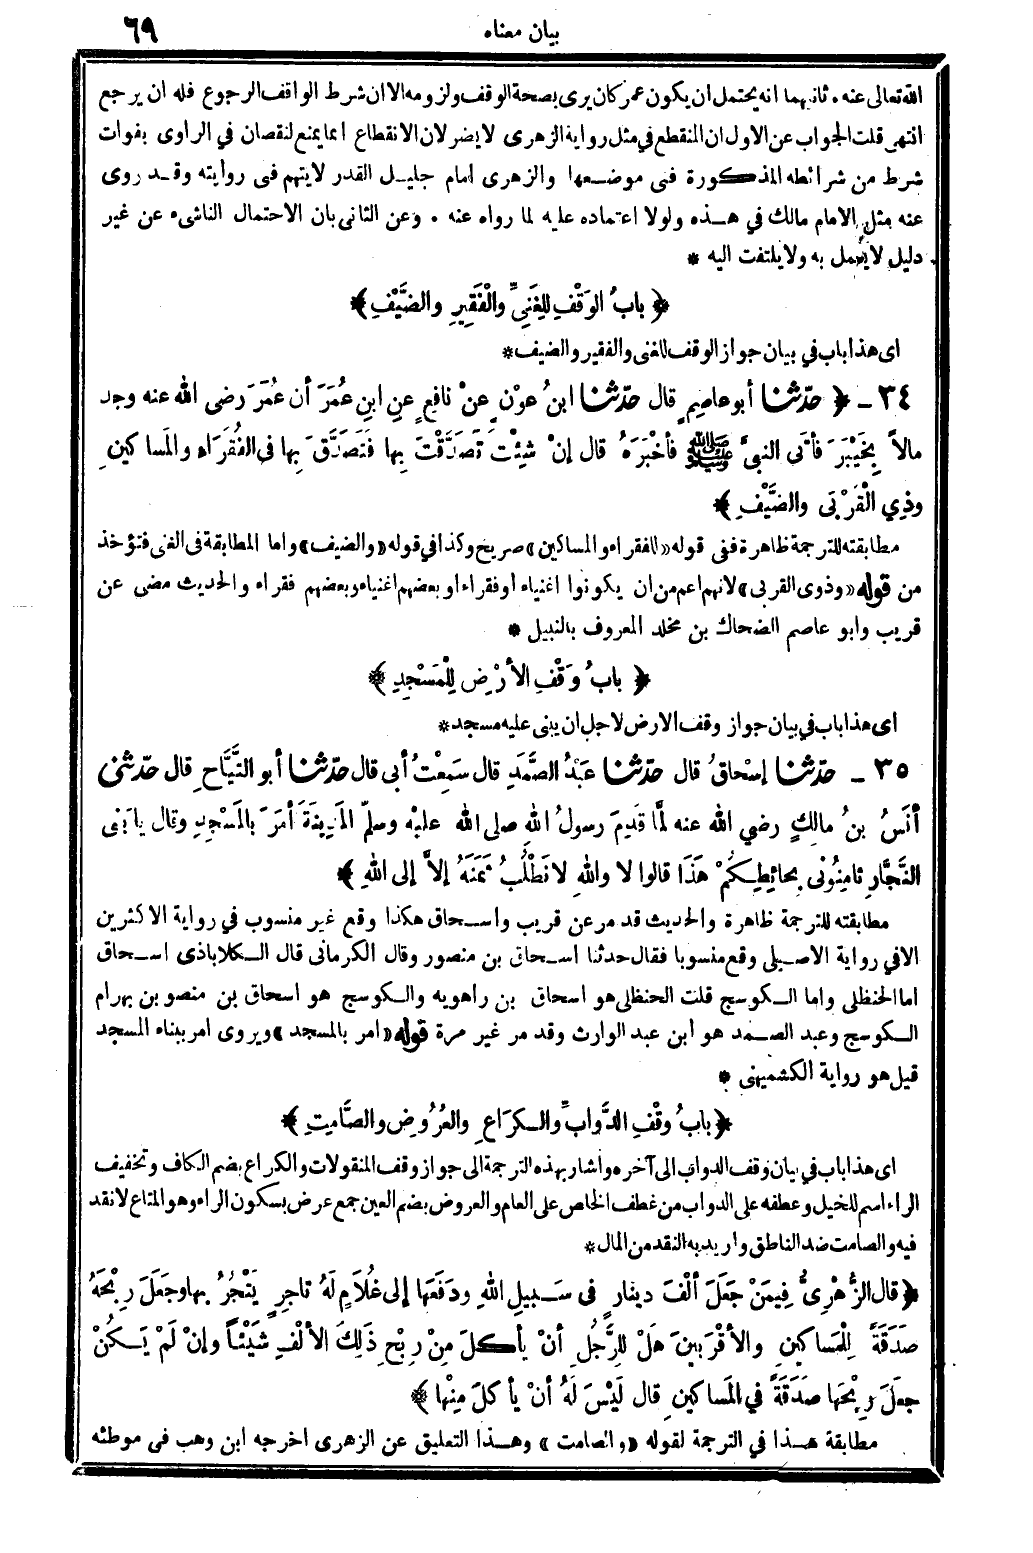 بيان معناه
٦٩
الله تعالى عنه. ثانيهما انه يحتمل ان يكون عمر كان يرى بصحة الوقف ولزومه الا ان شرط الواقف الرجوع فله ان يرجع
انتهى قلت الجواب عن الاول ان المنقطع في مثل رواية الزهرى لا يضر لان الانقطاع انما يمنع لنقصان في الراوى بفوات
شرط من شرائطه المذكورة فى موضعها والزهرى امام جليل القدر لايتهم فى روايته وقد روى
عنه مثل الامام مالك في هذه ولولا اعتماده عليه لما رواه عنه. وعن الثانى بان الاحتمال الناشىء عن غير
دليل لا يعمل به ولا يلتفت اليه *
﴿ بابُ الوَقْفِ لِلْغَنِيِّ والْفَقِيرِ والضَّيْفِ ﴾
اى هذا باب في بيان جواز الوقف للغنى والفقير والضيف *
٣٤ - ﴿ حدّثنا أبو عاصِمٍ قال حدّثنا ابنُ عوْنٍ عنْ نافِعٍ عنِ ابنِ عُمَرَ أن عُمَرَ رضى الله عنه وجد
مالاً بِخَيْبَرَ فأتى النبىَّ ﷺ فأخْبَرَهُ قال إنْ شِئْتَ تَصَدَّقْتَ بِها فَتَصَدَّقَ بِها فى الفُقَرَاء والمَساكِينِ
وذِي الْقُرْبَى والضَّيْفِ ﴾
مطابقته للترجمة ظاهرة ففى قوله «للفقراء والمساكين» صريح وكذا في قوله «والضيف» واما المطابقة فى الغنى فتؤخذ
من قوله «وذوى القربى» لانهم اعم من ان يكونوا اغنياء او فقراء او بعضهم اغنياء وبعضهم فقراء والحديث مضى عن
قريب وابو عاصم الضحاك بن مخلد المعروف بالنبيل *
﴿ بابُ وَقْفِ الأرْضِ لِلْمَسْجِدِ ﴾
اى هذا باب في بيان جواز وقف الارض لاجل ان يبنى عليه مسجد *
٣٥ - حدّثنا إسْحاقُ قال حدّثنا عَبْدُ الصَّمَدِ قال سَمِعْتُ أبي قال حدّثنا أبو التَّيَّاحِ قال حدّثنى
أنَسُ بنُ مالِكٍ رضي الله عنه لَمَّا قَدِمَ رسولُ اللهِ صلى الله عليْه وسلمّ المَدِينَةَ أمَرَ بالمَسْجِدِ وقال يا بَنِى
النَّجَّارِ ثامِنُونى بِحائِطِكُمْ هَذَا قالوا لا واللهِ لا نَطْلُبُ ثَمَنَهُ إلاَّ إلى اللهِ ﴾
مطابقته للترجمة ظاهرة والحديث قد مر عن قريب واسحاق هكذا وقع غير منسوب في رواية الاكثرين
الا في رواية الاصيلى وقع منسوبا فقال حدثنا اسحاق بن منصور وقال الكرمانى قال الكلاباذى اسحاق
اما الحنظلى واما الكوسج قلت الحنظلى هو اسحاق بن راهويه والكوسج هو اسحاق بن منصو بن بهرام
الكوسج وعبد الصمد هو ابن عبد الوارث وقد مر غير مرة قوله «امر بالمسجد» ويروى امر ببناء المسجد
قيل هو رواية الكشميهنى *
﴿ بابُ وقْفِ الدَّوابِّ والكرَاعِ والعُرُوضِ والصَّامِتِ ﴾
اى هذا باب في بيان وقف الدواب الى آخره وأشار بهذه الترجمة الى جواز وقف المنقولات والكراع بضم الكاف وتخفيف
الراء اسم للخيل وعطفه على الدواب من عطف الخاص على العام والعروض بضم العين جمع عرض بسكون الراء وهو المتاع لا نقد
فيه والصامت ضد الناطق واريد به النقد من المال *
﴿ قال الزُّهْرِىُّ فِيمَنْ جَعَلَ ألْفَ دِينارٍ فى سَبِيلِ اللهِ ودَفَعَها إلى غُلاَمٍ لَهُ تاجِرٍ يَتْجُرُ بِها وجَعَلَ رِبْحَهُ
صَدَقَةً لِلْمَساكِينِ والأقْرَبِينَ هَلْ لِلرَّجُلِ أنْ يأكلَ مِنْ رِبْحِ ذَلِكَ الألْفِ شَيْئاً وإنْ لَمْ يَكُنْ
جعَلَ رِبْحَها صَدَقَةً في المَساكينِ قال لَيْسَ لَهُ أنْ يأكلَ مِنْها ﴾
مطابقة هذا في الترجمة لقوله «والصامت» وهذا التعليق عن الزهرى اخرجه ابن وهب فى موطئه